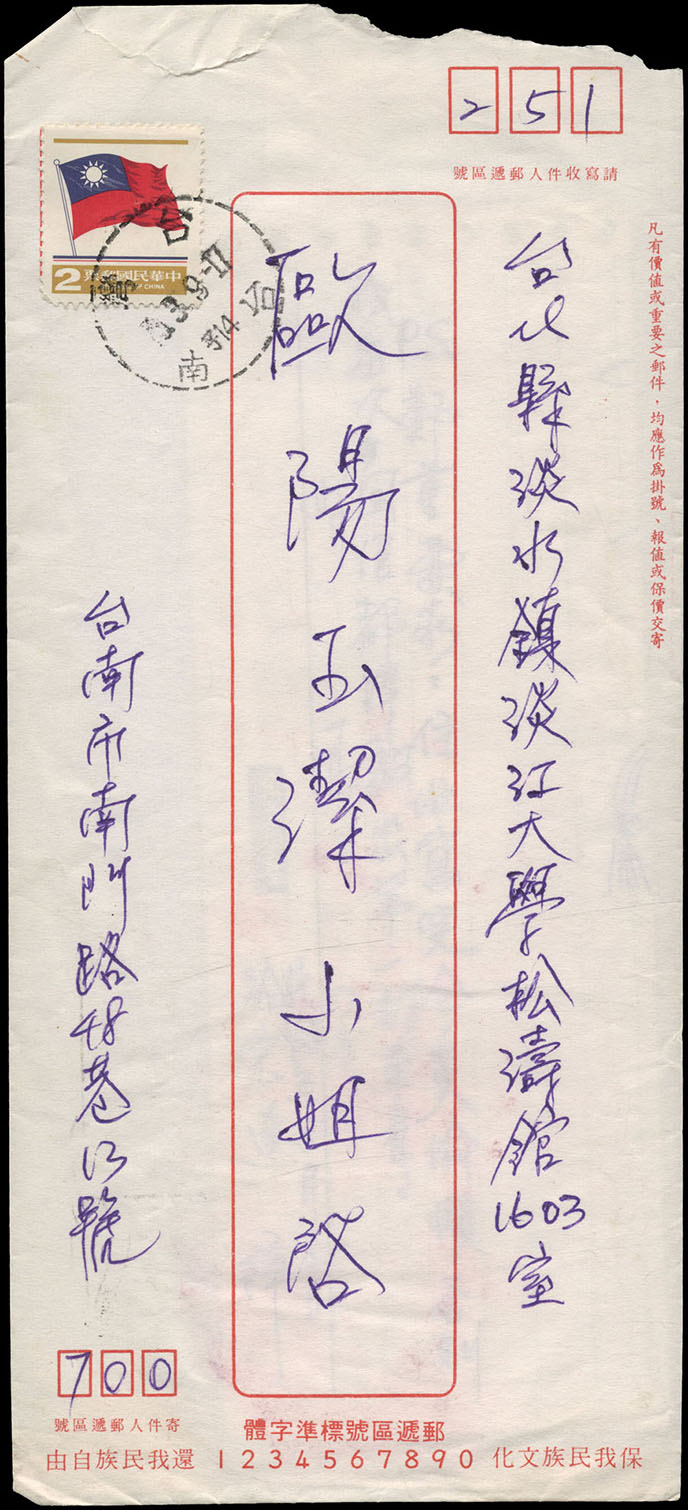 251
請寫收件人郵遞區號
凡有價值或重要之郵件，均應作為掛號、報值或保價交寄
台北縣淡水鎮淡江大學松濤館1603室
歐陽玉潔小姐啓
中華民國郵票
2
OF CHINA
台南
314
台南市南門路48巷13號
700
寄件人郵遞區號
郵遞區號標準字體
1234567890
保我民族文化
還我民族自由